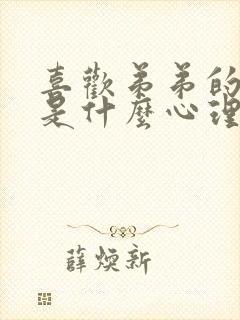 喜歡弟弟的
是什麼心理
薛煥新